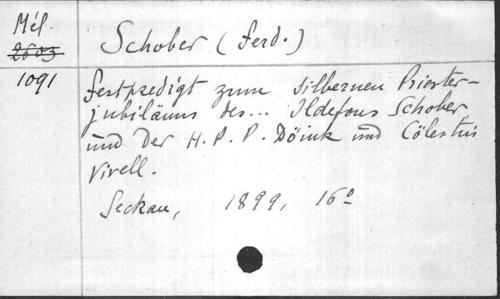 Mél.
2603
Schober (Ferd.)
1091
Festpredigt zum silbernen Priester-
jubiläums des... Ildefons Schober
und der H. P. P. Döink und Cölestin
Vivell.
Seckau, 1899, 16°